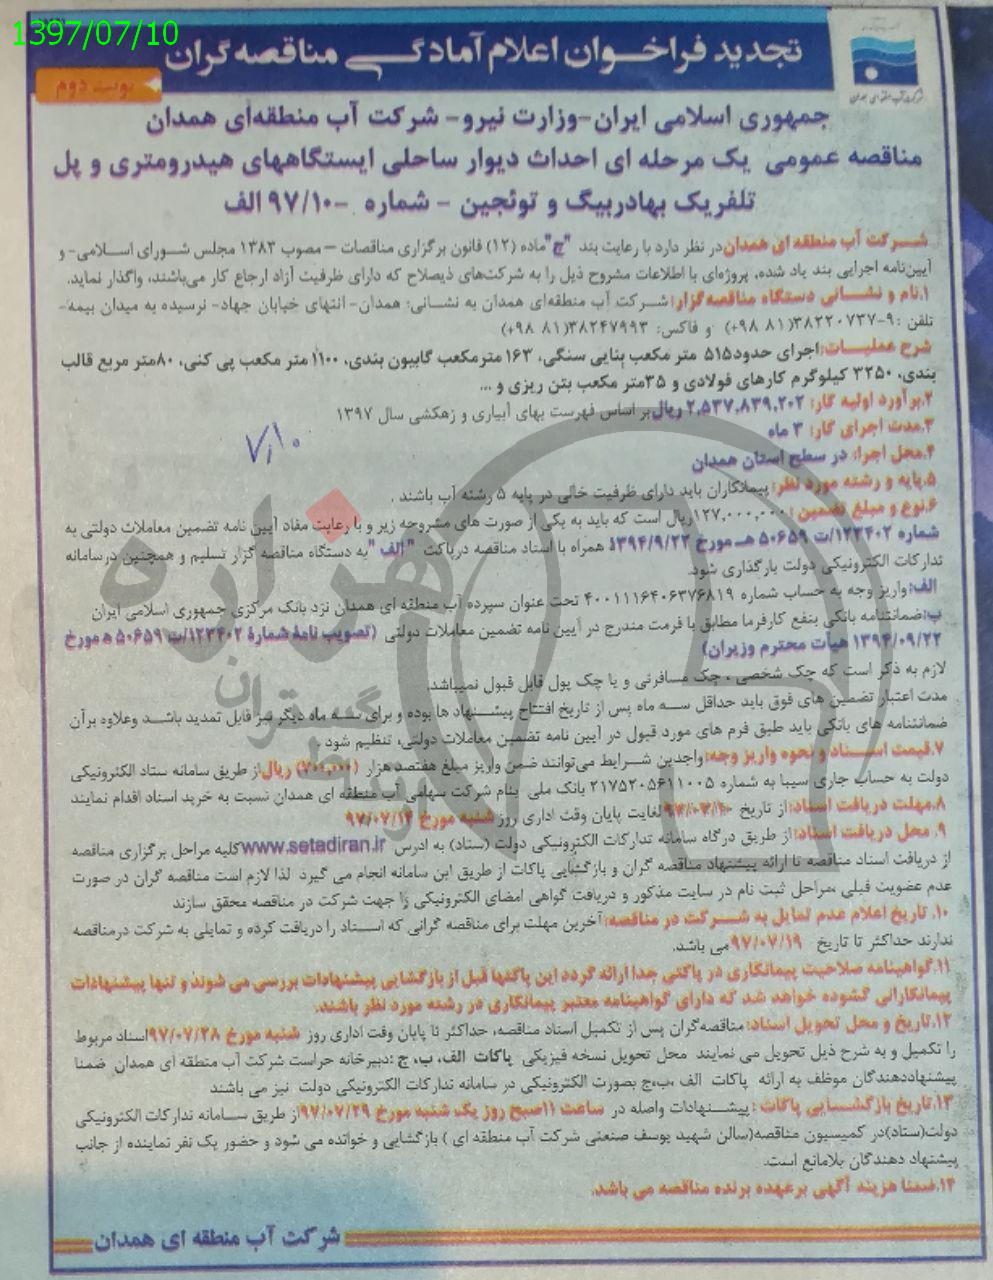 1397/07/10
تجدید فراخوان اعلام آمادگی مناقصه گران
نوبت دوم
جمهوری اسلامی ایران-وزارت نیرو- شرکت آب منطقه‌ای همدان
مناقصه عمومی یک مرحله ای احداث دیوار ساحلی ایستگاههای هیدرومتری و پل
تلفریک بهادربیگ و توئجین - شماره -۹۷/۱۰ الف
شرکت آب منطقه ای همدان در نظر دارد با رعایت بند "ج" ماده (۱۲) قانون برگزاری مناقصات – مصوب ۱۳۸۳ مجلس شورای اسلامی- و
آیین‌نامه اجرایی بند یاد شده، پروژه‌ای با اطلاعات مشروح ذیل را به شرکت‌های ذیصلاح که دارای ظرفیت آزاد ارجاع کار می‌باشند، واگذار نماید.
۱.نام و نشانی دستگاه مناقصه‌گزار: شرکت آب منطقه‌ای همدان به نشانی: همدان- انتهای خیابان جهاد- نرسیده به میدان بیمه-
تلفن :۹-۳۸۲۲۰۷۳۷(۸۱ ۹۸+) و فاکس: ۳۸۲۴۷۹۹۳(۸۱ ۹۸+)
شرح عملیات: اجرای حدود۵۱۵ متر مکعب بنایی سنگی، ۱۶۳ مترمکعب گابیون بندی، ۱۱۰۰ متر مکعب پی کنی، ۸۰متر مربع قالب
بندی، ۳۲۵۰ کیلوگرم کارهای فولادی و ۳۵متر مکعب بتن ریزی و ...
۲.برآورد اولیه کار: ۲,۵۳۷,۸۳۹,۲۰۲ ریال بر اساس فهرست بهای آبیاری و زهکشی سال ۱۳۹۷
۳.مدت اجرای کار: ۳ ماه
۷/۱۰
۴.محل اجرا: در سطح استان همدان
۵.پایه و رشته مورد نظر: پیمانکاران باید دارای ظرفیت خالی در پایه ۵ رشته آب باشند .
۶.نوع و مبلغ تضمین : ۱۲۷,۰۰۰,۰۰۰ریال است که باید به یکی از صورت های مشروحه زیر و با رعایت مفاد آیین نامه تضمین معاملات دولتی به
شماره ۱۲۳۴۰۲/ت ۵۰۶۵۹ هـ مورخ ۱۳۹۴/۹/۲۲ همراه با اسناد مناقصه درپاکت "الف" به دستگاه مناقصه گزار تسلیم و همچنین درسامانه
تدارکات الکترونیکی دولت بارگذاری شود.
الف:واریز وجه به حساب شماره ۴۰۰۱۱۱۶۴۰۶۳۷۶۸۱۹ تحت عنوان سپرده آب منطقه ای همدان نزد بانک مرکزی جمهوری اسلامی ایران
ب:ضمانتنامه بانکی بنفع کارفرما مطابق با فرمت مندرج در آیین نامه تضمین معاملات دولتی (تصویب نامۀ شمارۀ ۱۲۳۴۰۲/ت ۵۰۶۵۹ ه مورخ
۱۳۹۴/۰۹/۲۲ هیأت محترم وزیران)
لازم به ذکر است که چک شخصی ، چک مسافرتی و یا چک پول قابل قبول نمیباشد.
مدت اعتبار تضمین های فوق باید حداقل سه ماه پس از تاریخ افتتاح پیشنهاد ها بوده و برای سه ماه دیگر نیز قابل تمدید باشد وعلاوه برآن
ضمانتنامه های بانکی باید طبق فرم های مورد قبول در آیین نامه تضمین معاملات دولتی، تنظیم شود .
۷.قیمت اسناد و نحوه واریز وجه: واجدین شرایط می‌توانند ضمن واریز مبلغ هفتصد هزار (۷۰۰,۰۰۰) ریال از طریق سامانه ستاد الکترونیکی
دولت به حساب جاری سیبا به شماره ۲۱۷۵۲۰۵۶۱۱۰۰۵ بانک ملی بنام شرکت سهامی آب منطقه ای همدان نسبت به خرید اسناد اقدام نمایند
۸.مهلت دریافت اسناد: از تاریخ ۹۷/۰۷/۱۰ لغایت پایان وقت اداری روز شنبه مورخ ۹۷/۰۷/۱۴
۹. محل دریافت اسناد: از طریق درگاه سامانه تدارکات الکترونیکی دولت (ستاد) به ادرس www.setadiran.ir کلیه مراحل برگزاری مناقصه
از دریافت اسناد مناقصه تا ارائه پیشنهاد مناقصه گران و بازگشایی پاکات از طریق این سامانه انجام می گیرد لذا لازم است مناقصه گران در صورت
عدم عضویت قبلی ،مراحل ثبت نام در سایت مذکور و دریافت گواهی امضای الکترونیکی را جهت شرکت در مناقصه محقق سازند
۱۰. تاریخ اعلام عدم تمایل به شرکت در مناقصه: آخرین مهلت برای مناقصه گرانی که اسناد را دریافت کرده و تمایلی به شرکت درمناقصه
ندارند حداکثر تا تاریخ ۹۷/۰۷/۱۹ می باشد.
۱۱.گواهینامه صلاحیت پیمانکاری در پاکتی جدا ارائه گردد این پاکتها قبل از بازگشایی پیشنهادات بررسی می شوند و تنها پیشنهادات
پیمانکارانی گشوده خواهد شد که دارای گواهینامه معتبر پیمانکاری در رشته مورد نظر باشند.
۱۲.تاریخ و محل تحویل اسناد: مناقصه‌گران پس از تکمیل اسناد مناقصه، حداکثر تا پایان وقت اداری روز شنبه مورخ ۹۷/۰۷/۲۸ اسناد مربوط
را تکمیل و به شرح ذیل تحویل می نمایند محل تحویل نسخه فیزیکی پاکات الف، ب، ج :دبیرخانه حراست شرکت آب منطقه ای همدان ضمنا
پیشنهاددهندگان موظف به ارائه پاکات الف ،ب،ج بصورت الکترونیکی در سامانه تدارکات الکترونیکی دولت نیز می باشند
۱۳.تاریخ بازگشایی پاکات : پیشنهادات واصله در ساعت ۱۱صبح روز یک شنبه مورخ ۹۷/۰۷/۲۹ از طریق سامانه تدارکات الکترونیکی
دولت(ستاد)در کمیسیون مناقصه(سالن شهید یوسف صنعتی شرکت آب منطقه ای ) بازگشایی و خوانده می شود و حضور یک نفر نماینده از جانب
پیشنهاد دهندگان بلامانع است.
۱۴.ضمنا هزینه آگهی برعهده برنده مناقصه می باشد.
شرکت آب منطقه ای همدان